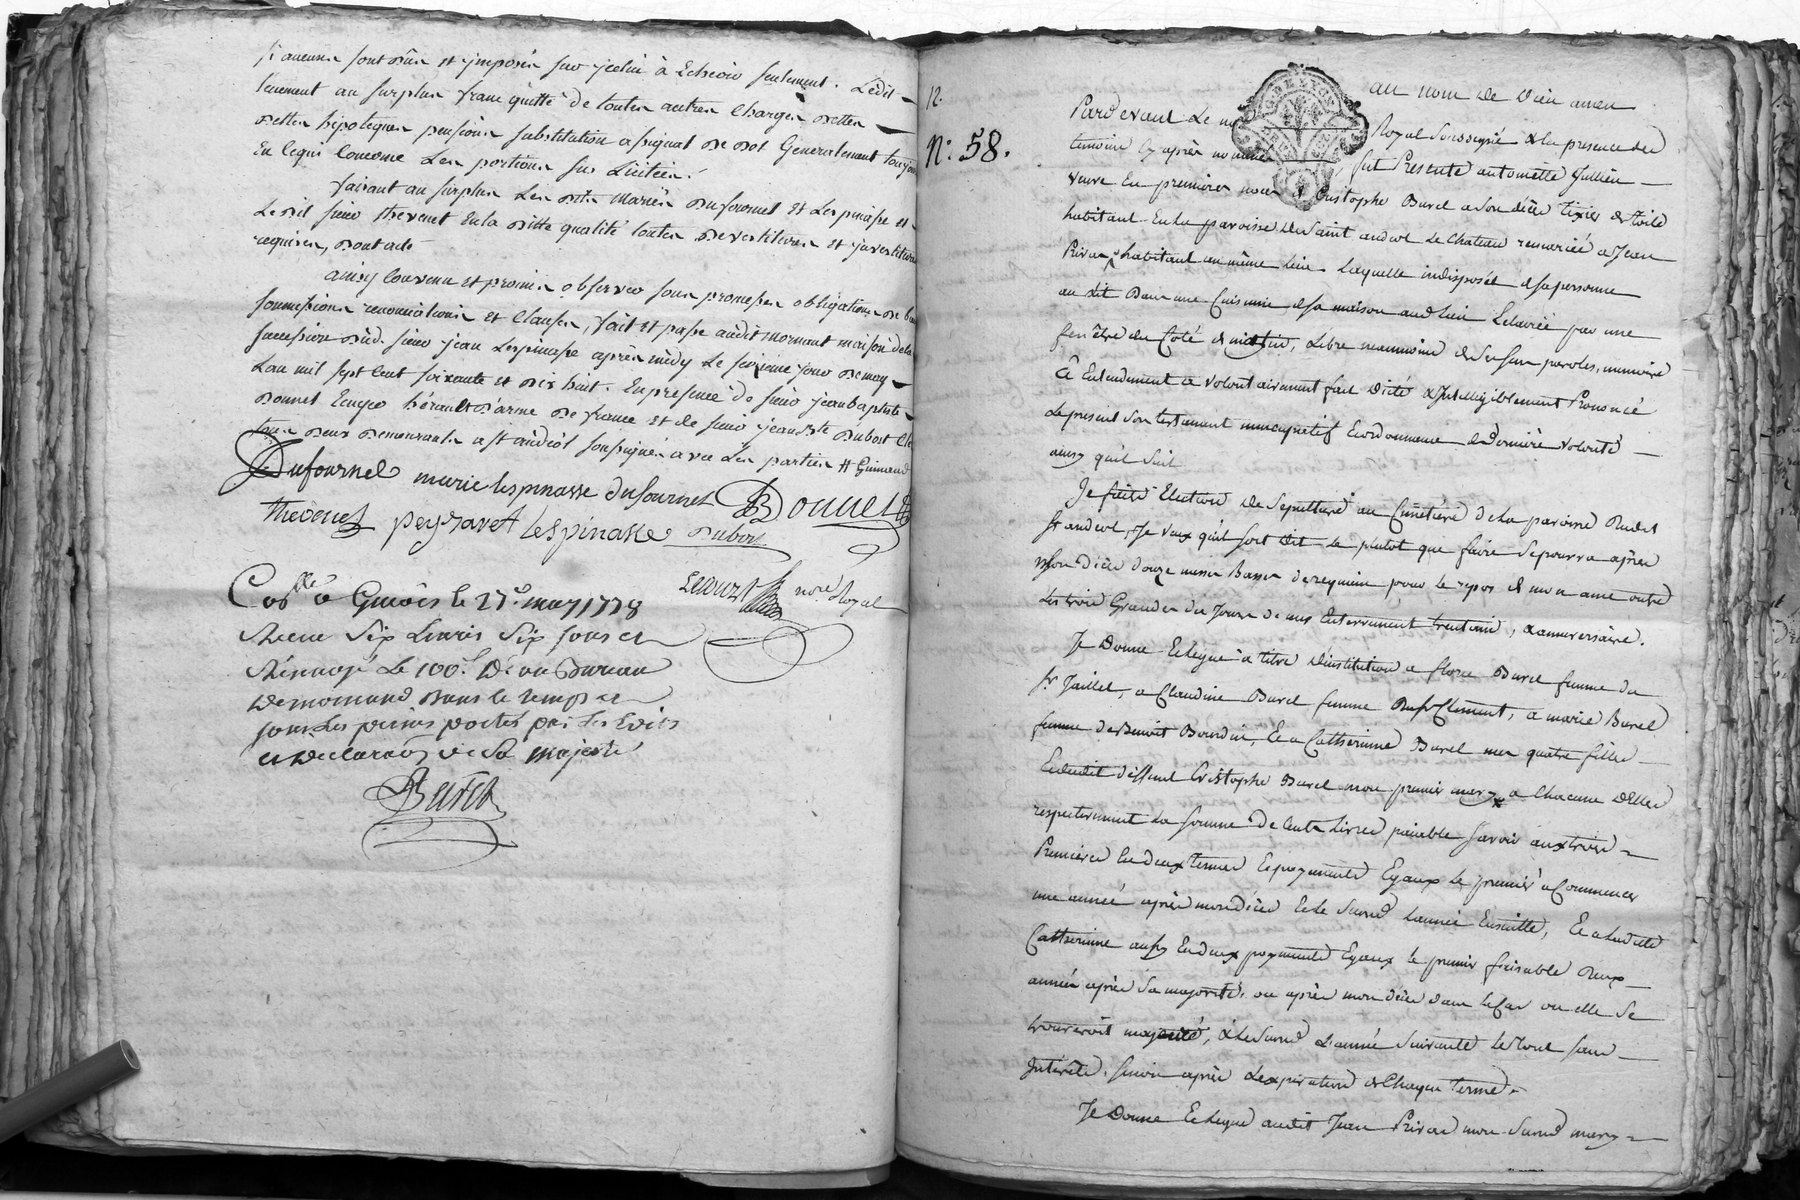 si aucuns sont dûs et imposés sur iceluy à Echeoir seulement. Ledit
tenement au surplus franc quitte de toutes autres Charges dettes
dettes hipoteques pensions substitution assignat de dot Generalement
En lequi Concerne Les portions sus Licitées.
faisant au surplus Les dits Mariés Dufournel Et Lespinasse et
Le dit sieur thevenet En la ditte qualité toutes devestitures et jnvestitures
requises, dont acte
ainsy Convenu et promis observer sous promesses obligations de
soumissions renonciations et Clauses, fait et passé audit Mornant maison de la
succession dud. sieur jean Lespinasse après midy Le seizieme jour de may
Lan mil sept Cent soixante et dix huit. En presence de sieur jean baptiste
Donnet Ecuyer hérault d'arme de france et de sieur jean Bte Dubost
tous deux demeurants a st andéol soussignés avec Les parties
Dufournel marie lespinasse dufournel Donnet
thevenet peyzaret Lespinasse Dubost
nore. Royal
Collé a Givors le 27e. may 1778
Receu Six Livres Six sous et
Renvoyé Le 100e. Dé au Bureau
De mornand dans le temps et
sous Les peines portés par Les Edits
et Declaraõn de Sa Majesté
12.
N°. 58.
au nom de Dieu amen
Pardevant Le no Royal Soussigné & la presence des
temoins Cy après nommés, fut Presente antoinette Jullien
veuve En premieres noces Cristophe Burel a Son décès tixier de toile
habitant En la paroisse de Saint andeol Le Chateau remariée a Jean
Privas habitant au même lieu. Laquelle indisposée de sa personne
au Lit Dans une Cuisine de sa maison aud. lieu Eclairée par une
fenêtre du Côté de matin, Libre neanmoins de Ses Sens paroles, memoire
& Entendement a volontairement fait Dicté & Intelligiblement Prononcé
Le present Son testament nuncupatif Et ordonnance de Derniere volonté
ainsy qu'il Suit
Je fais Election de Sepulture au Cimetiere de La paroisse dudit
St andeol, Je veux qu'il soit dit le plutot que faire Se pourra après
Mon Décès douze messes Basses de requiem pour le repos de mon ame outre
Les trois Grandes du Jour de mes Enterrement trentain, & anniversaire.
Je Donne & Legue a titre d'institution a fleurie Burel femme de
Sr. Jaillet, a Claudine Burel femme Clement, a marie Burel
femme de Benoit Bourdin, Et a Catherinne Burel mes quatre filles
Et dudit deffunt Cristophe Burel mon premier mary a Chacune D'Elles
respectivement La somme de Cents Livres païable Savoir aux trois
Premieres En deux termes Et payements Egaux le premier a Commencer
une année après mon décès Et le Second L'année Ensuitte, Et a Ladite
Catherinne aussy En deux payements Egaux le premier faisable deux
années après Sa majorité, ou après mon décès dans le Cas ou elle Se
trouveroit majeure, & le Second L'année Suivante le tout sans
Intérêts. sinon après L'expiration de Chaque terme.
Je Donne & Legue audit Jean Privas mon Second mary